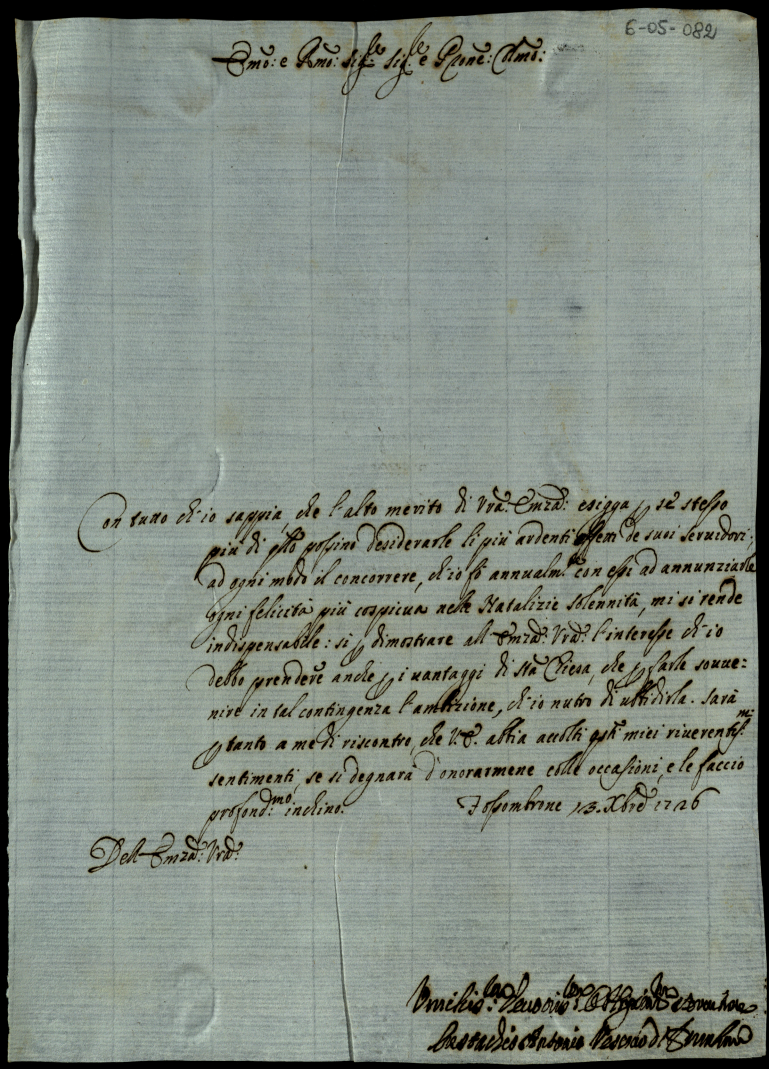 6-05-082
Emo: e Rmo: Sig.re Sig.re e Prone: Clmo:
Con tutto ch'io sappia, che l'alto merito di Vra: Emza: esigga p se stesso
più di qllo possino desiderarle li più ardenti affetti de suoi servidori;
ad ogni modo il concorrere, ch'io fò annualm.te con essi ad annunziarle
ogni felicità più cospicua nelle Natalizie solennità, mi si rende
indispensabile: si p dimostrare all'Emza: Vra: l'interesse ch'io
debbo prendere anche p i vantaggi di Sta Chiesa, che p farle souue=
nire in tal contingenza l'ambizione, ch'io nutro di ubbidirla. Sarà
p tanto a me di riscontro, che V.E. abbia accolti qsti miei riuerentis.mi
sentimenti, se si degnarà d'onorarmene colle occasioni, e le faccio
profond.mo inchino. Fossombrone 13. Xbre 1726
Dell'Emza: Vra:
Umilis.mo Deuotis.mo Servitore
Eustachio Antonio Vescovo di